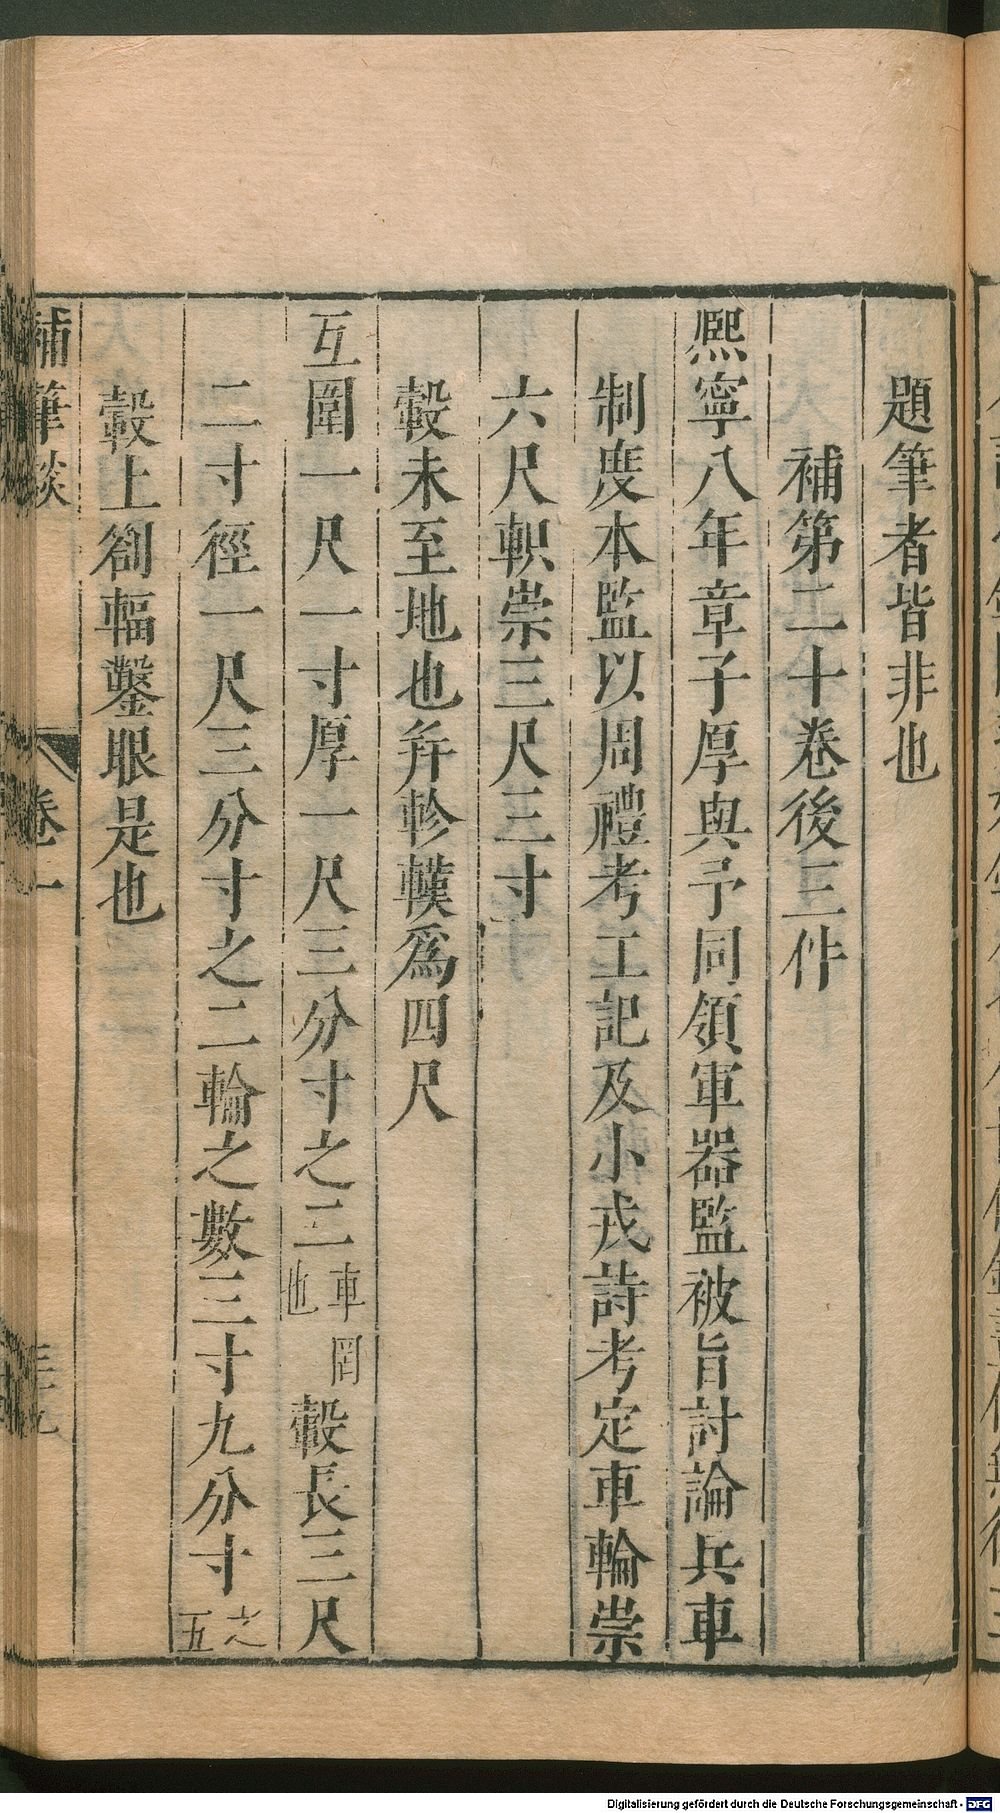 題筆者皆非也
補第二十卷後三件
熙寧八年章子厚與予同領軍器監被旨討論兵車
制度本監以周禮考工記及小戎詩考定車輪崇
六尺軹崇三尺三寸
轂未至地也并軫轐爲四尺
互圍一尺一寸厚一尺三分寸之二車罔也轂長三尺
二寸徑一尺三分寸之二輪之數三寸九分寸之五
轂上劄輻鑿眼是也
補筆談
卷一
三九
Digitalisierung gefördert durch die Deutsche Forschungsgemeinschaft - DFG